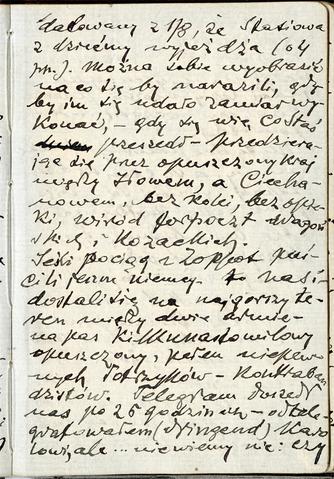 datowany z 1/8, że Stasiowa
z dziećmi wyjeżdża (o 4
pp.). Można sobie wyobrazić
na co się by narazili, gdy
by im się udało zamiar wy
konać, – gdy się wie, co Staś
przeszedł – przedziera-
jąc się przez opuszczony kraj
między Iłowem, a Ciecha-
nowem, bez kolei, bez opie-
ki, wśród forpoczt
skich i Kozackich.
Jeśli pociąg z Zoppot puś-
cili jeszcze niemcy – to nasi
dostali się na najgorszy te-
ren między dwie armie –
na pas kilkunastomilowy
opuszczony, pełen niepew-
nych Kontraban
dzistów. Telegram doszedł
nas po 26 godzinach – odtele-
grafowałem (dringend) Karo
lowi, ale ... niewiemy nic: czy